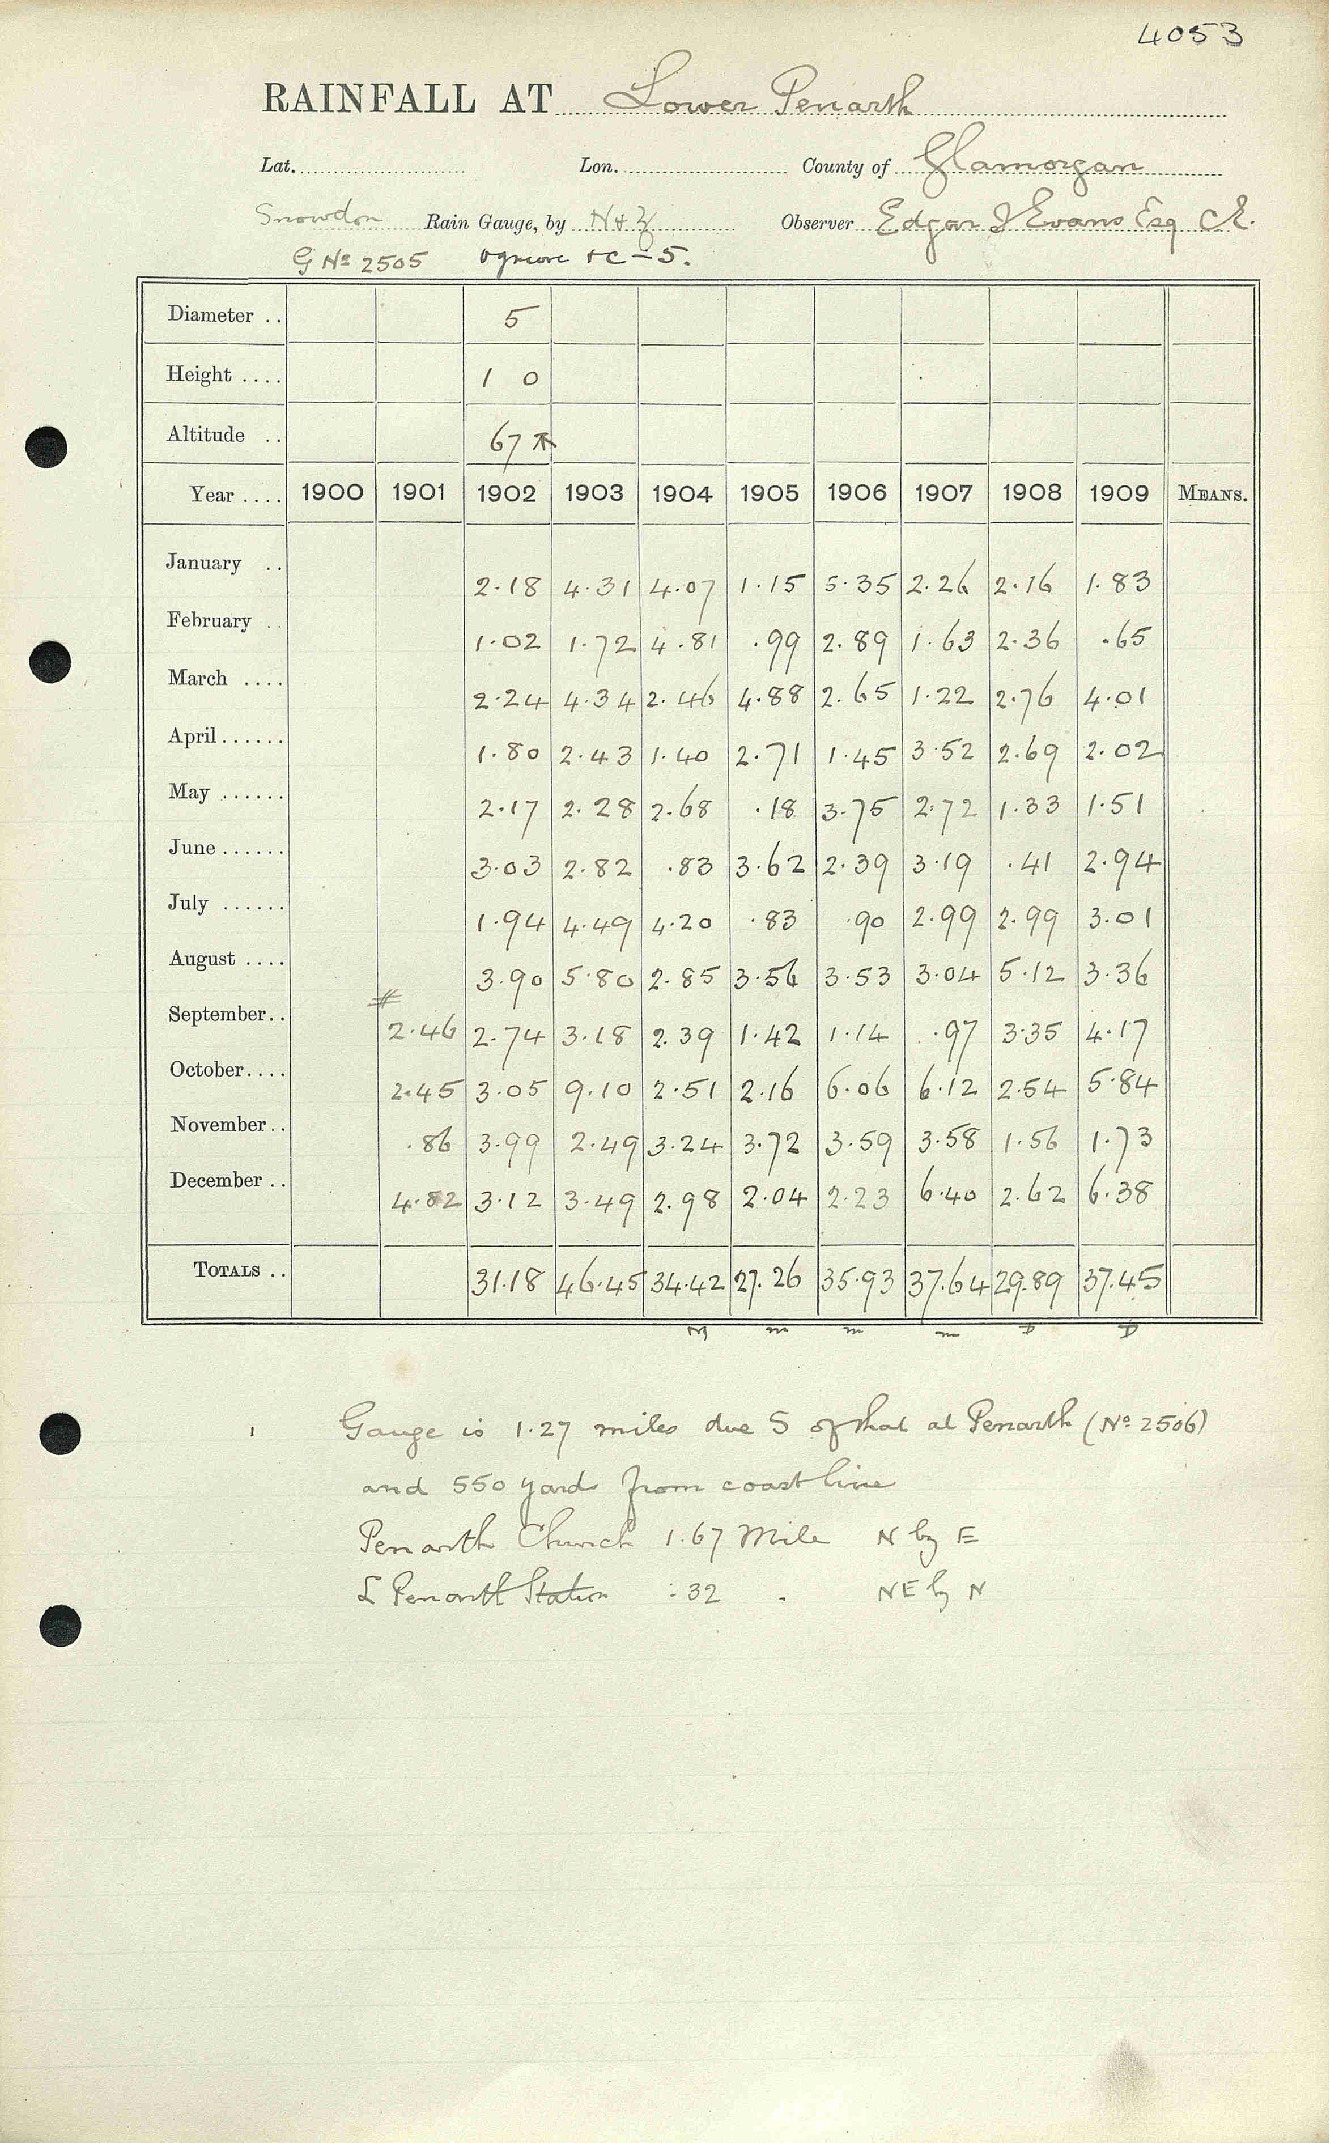 4053
RAINFALL AT Lower Penarth
Lat. Lon. County of Glamorgan
Snowdon Rain Gauge, by N & Z Observer Edgar I Evans Esq C.E.
G No 2505 Ogmore &c - 5.
Diameter .. 5
Height .... 1 0
Altitude .. 67
Year .... 1900 1901 1902 1903 1904 1905 1906 1907 1908 1909 MEANS.
January .. 2.18 4.31 4.07 1.15 5.35 2.26 2.16 1.83
February .. 1.02 1.72 4.81 .99 2.89 1.63 2.36 .65
March .... 2.24 4.34 2.46 4.88 2.65 1.22 2.76 4.01
April...... 1.80 2.43 1.40 2.71 1.45 3.52 2.69 2.02
May ...... 2.17 2.28 2.68 .18 3.75 2.72 1.33 1.51
June ...... 3.03 2.82 .83 3.62 2.39 3.19 .41 2.94
July ...... 1.94 4.49 4.20 .83 .90 2.99 2.99 3.01
August .... 3.90 5.80 2.85 3.56 3.53 3.04 5.12 3.36
September.. # 2.46 2.74 3.18 2.39 1.42 1.14 .97 3.35 4.17
October.... 2.45 3.05 9.10 2.51 2.16 6.06 6.12 2.54 5.84
November.. .86 3.99 2.49 3.24 3.72 3.59 3.58 1.56 1.73
December .. 4.82 3.12 3.49 2.98 2.04 2.23 6.40 2.62 6.38
TOTALS .. 31.18 46.45 34.42 27.26 35.93 37.64 29.89 37.45
M m m m D D
Gauge is 1.27 miles due S of that at Penarth (No 2506)
and 550 yards from coast line
Penarth Church 1.67 Mile N by E
L Penarth Station .32 . NE by N